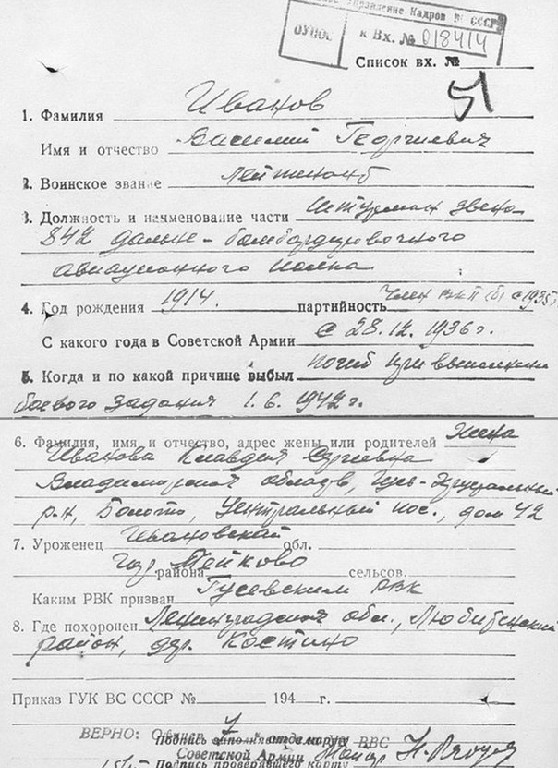 Управление Кадров ВВС СССР
ОУПОС
к Вх. № 018414
Список вх. №
51
1. Фамилия Иванов
Имя и отчество Василий Георгиевич
2. Воинское звание Лейтенант
3. Должность и наименование части Штурман звена
842 дальне-бомбардировочного
авиационного полка
4. Год рождения 1914. партийность Член ВКП(б) с 1935
С какого года в Советской Армии с 28.12.1936 г.
5. Когда и по какой причине выбыл погиб при выполнении
боевого задания 1.6.1942 г.
6. Фамилия, имя, и отчество, адрес жены или родителей Жена
Иванова Клавдия
Владимирская область, Гусь-Хрустальный
р-н, Болото, Центральный пос., дом 42
7. Уроженец Ивановской обл.
гор. Тейково района сельсов.
Каким РВК призван Гусевским РВК
8. Где похоронен Ленинградская обл., Любытинский
район, дер. Костино
Приказ ГУК ВС СССР № 194 г.
ВЕРНО:
Подпись ВВС
Советской Армии Майор
Подпись проверявшего карту